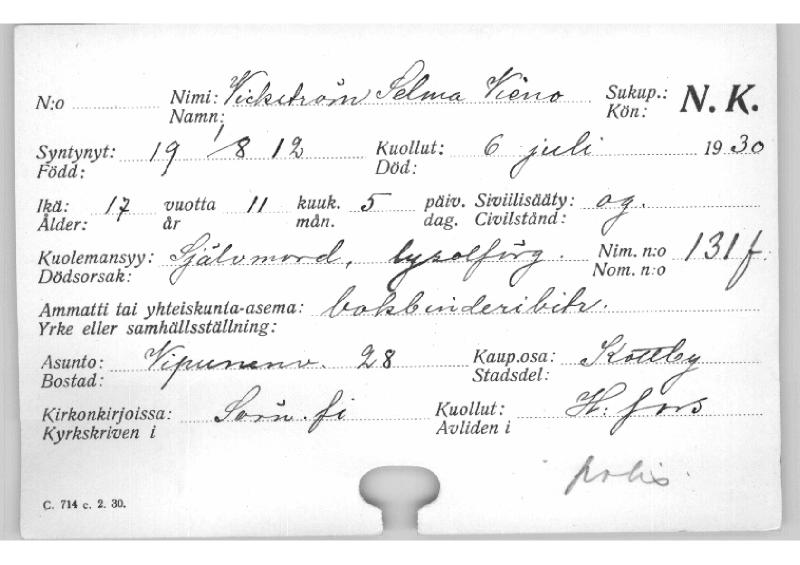 N:o Nimi: Vickström Selma Vieno Sukup.: N. K.
Namn: Kön:
Syntynyt: 19 1/8 12 Kuollut: 6 juli 1930
Född: Död:
Ikä: 17 vuotta 11 kuuk. 5 päiv. Siviilisääty: og.
Ålder: år mån. dag. Civilstånd:
Kuolemansyy: Självmord, lysolförg. Nim. n:o 131 f.
Dödsorsak: Nom. n:o
Ammatti tai yhteiskunta-asema: bokbinderibitr.
Yrke eller samhällsställning:
Asunto: Vipunenv. 28 Kaup.osa: Kottby
Bostad: Stadsdel:
Kirkonkirjoissa: Sörn. fi Kuollut: H:fors
Kyrkskriven i Avliden i
polis.
C. 714 c. 2. 30.